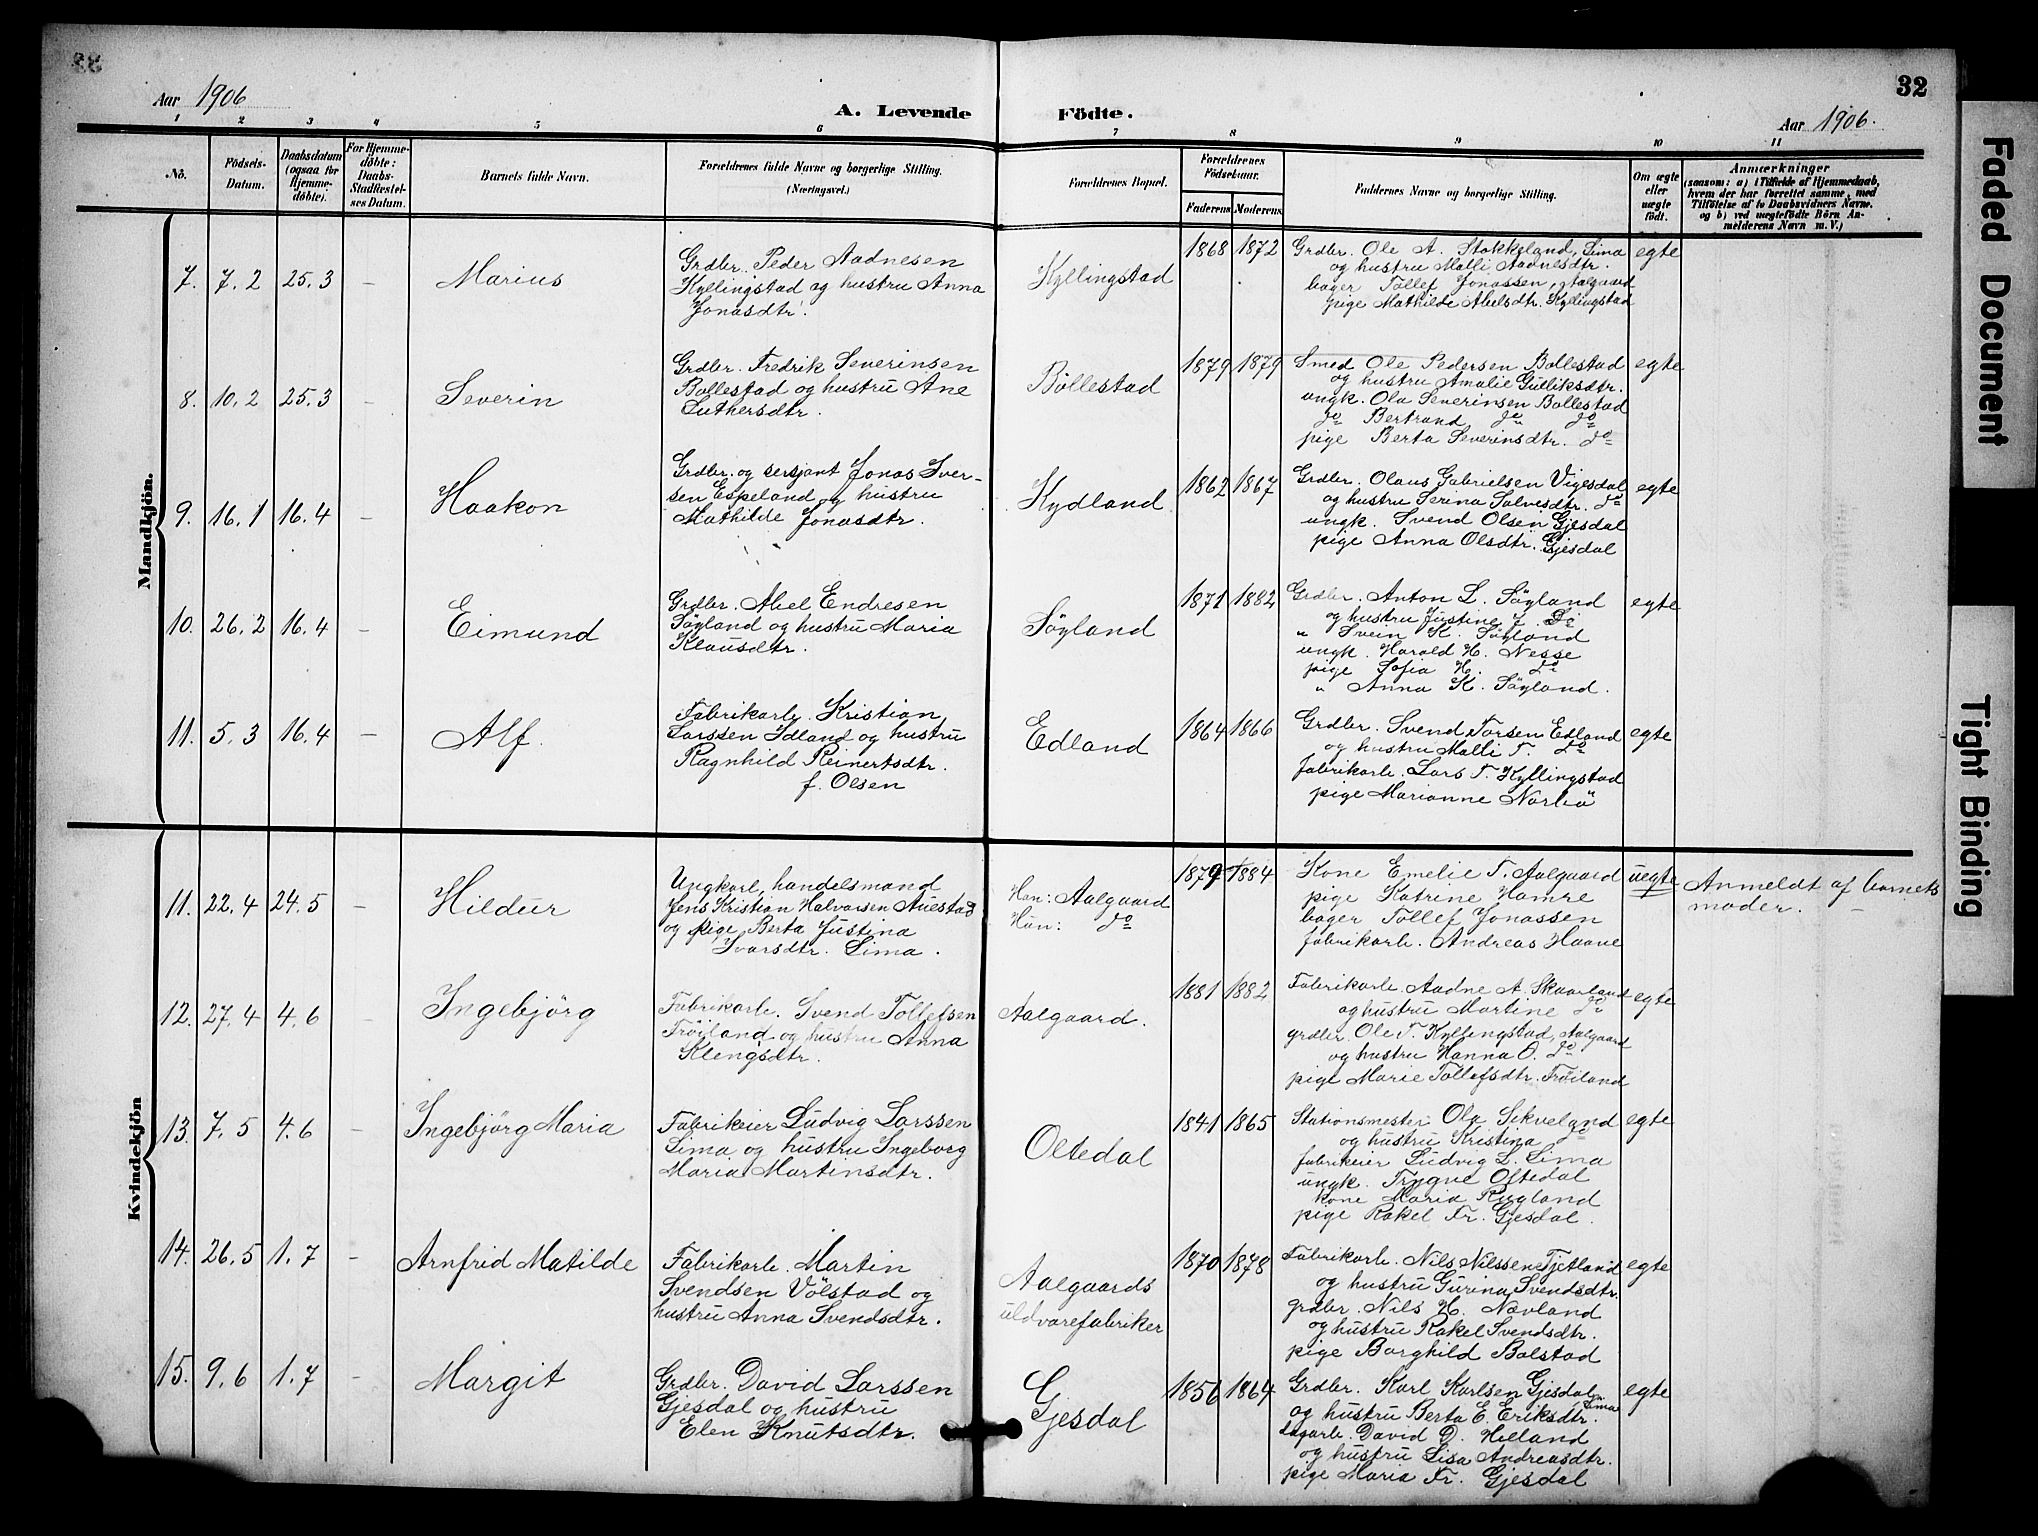 32
Aar 1906
A. Levende Födte.
Aar 1906.
1 2 3 4 5 6 7 8 9 10 11
No.
Födsels-Datum.
Daabsdatum (ogsaa for Hjemme-döbte).
For Hjemme-döbte: Daabs-Stadfæstel-ses Datum.
Barnets fulde Navn.
Forældrenes fulde Navne og borgerlige Stilling.
(Næringsvei.)
Forældrenes Bopæl.
Forældrenes Födselsaar.
Faderens Moderens
Faddernes Navne og borgerlige Stilling.
Om ægte eller uægte födt.
Anmærkninger
(saasom: a) i Tilfælde af Hjemmedaab,
hvem der har forrettet samme, med
Tilföielse af to Daabsvidners Navne.
og b) ved uægtefödte Börn An-
melderens Navn m. V.)
Mandkjön.
7. 7.2 25.3 – Marius
Grdbr. Peder Aadnesen
Kyllingstad og hustru Anna
Jonasdtr.
Kyllingstad
1868 1872
Grdbr. Ole A. Stokkeland, Lima
og hustru Malli Aadnesdtr.
bager Tollef Jonassen, Aalgaard
pige Mathilde Abelsdtr. Kyllingstad
egte
8. 10.2 25.3 – Severin
Grdbr. Fredrik Severinsen
Bollestad og hustru Ane
Luthersdtr.
Bollestad
1879 1879
Smed Ole Pedersen Bollestad
og hustru Amalie Gulliksdtr.
ungk. Ola Severinsen Bollestad
do Bertrand do do
pige Berta Severinsdtr. do
egte
9. 16.1 16.4 – Haakon
Grdbr. og sersjant Jonas Iver-
sen Espeland og hustru
Mathilde Jonasdtr.
Kydland
1862 1867
Grdbr. Olaus Gabrielsen Vigesdal
og hustru Serina Salvesdtr. do
ungk. Svend Olsen Gjesdal
pige Anna Olsdtr. Gjesdal
egte
10. 26.2 16.4 – Eimund
Grdbr. Abel Endresen
Söyland og hustru Maria
Klausdtr.
Söyland
1871 1882
Grdbr. Anton L. Söyland
og hustru Justine J. do
" Svein K. Söyland
ungk. Harald H. Nesse
pige Sofia H. do
" Anna K. Söyland.
egte
11. 5.3 16.4 – Alf.
Fabrikarb. Kristian
Larssen Idland og hustru
Ragnhild Reinertsdtr.
f. Olsen
Edland
1864 1866
Grdbr. Svend Torsen Edland
og hustru Malli T. do
fabrikarb. Lars T. Kyllingstad
pige Marianne Norbö
egte
Kvindekjön
11. 22.4 24.5 – Hildur
Ungkarl, handelsmand
Jens Kristian Halvorsen Auestad
og pige Berta Justina
Ivarsdtr. Lima.
Han: Aalgaard
Hun: do
1879 1884
Kone Emelie T. Aalgaard
pige Katrine Hamre
bager Tollef Jonassen
fabrikarb. Andreas Haave
uegte
Anmeldt af barnets
moder. –
12. 27.4 4.6 – Ingebjörg
Fabrikarb. Svend Tollefsen
Fröiland og hustru Anna
Klengsdtr.
Aalgaard.
1881 1882
Fabrikarb. Aadne A. Skaarland
og hustru Martine do
grdbr. Ole T. Kyllingstad, Aalgaard
og hustru Hanna O. do
pige Marie Tollefsdtr. Fröiland
egte
13. 7.5 4.6 – Ingebjörg Maria
Fabrikeier Ludvig Larssen
Lima og hustru Ingeborg
Maria Martinsdtr.
Oltedal
1841 1865
Stationsmester Ola Sikveland
og hustru Kristina do
fabrikeier Ludvig L. Lima
ungk. Trygve Oltedal
kone Maria Rugland
pige Rakel Fr. Gjesdal.
egte
14. 26.5 1.7 – Arnfrid Matilde
Fabrikarb. Martin
Svendsen Völstad og
hustru Anna Svendsdtr.
Aalgaards
uldvarefabriker
1870 1878
Fabrikarb. Nils Nilssen Tjetland
og hustru Gurina Svendsdtr.
grdbr. Nils H. Nævland
og hustru Rakel Svendsdtr.
pige Borghild Bolstad
egte
15. 9.6 1.7 – Margit
Grdbr. David Larssen
Gjesdal og hustru
Elen Knutsdtr.
Gjesdal
1856 1864
Grdbr. Karl Karlsen Gjesdal,
og hustru Berta E. Eriksdtr. Lima
dagarb. David D. Helland
og hustru Lisa Andreasdtr.
pige Maria Fr. Gjesdal
egte
Faded Document
Tight Binding